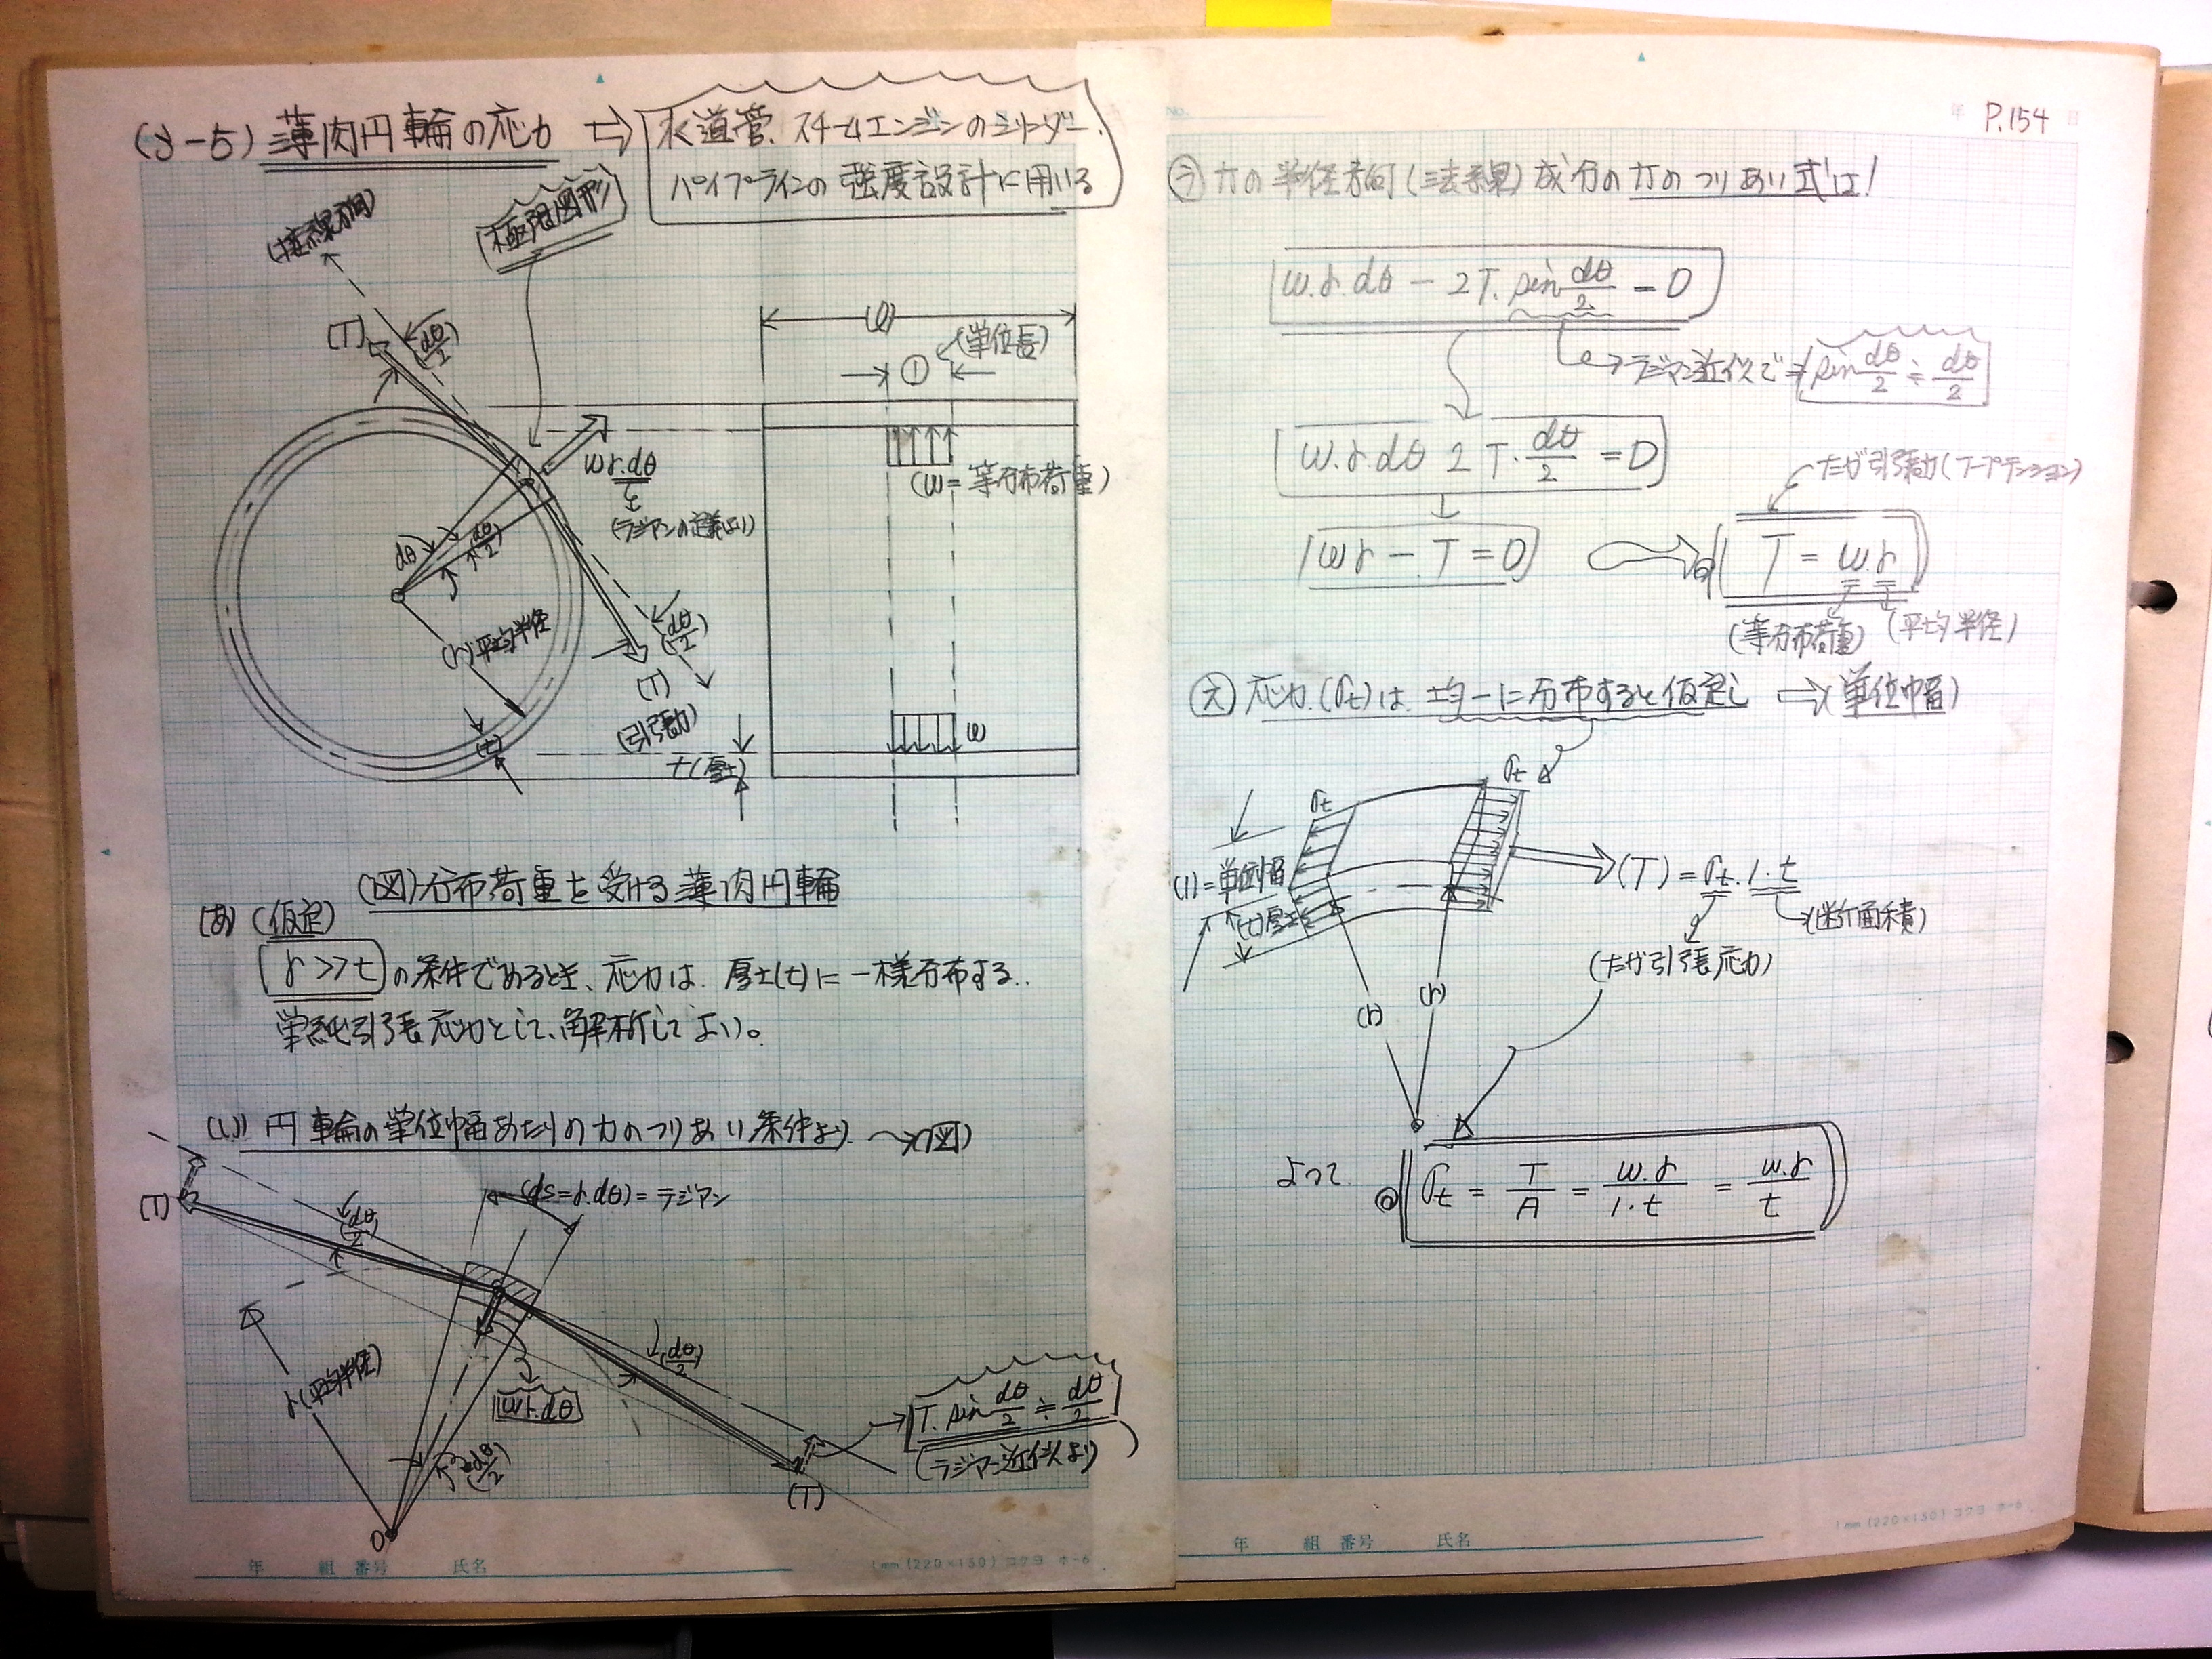 (3-5) 薄肉円輪の応力 ⇒ 水道管、スチームエンジンのシリンダー、
パイプラインの強度設計に用いる
(接線方向)
(極限図形)
(T)
(dθ/2)
(l)
① (単位長)
wr.dθ
(ラジアンの定義より)
(w=等分布荷重)
dθ
(dθ/2)
(r)平均半径
(dθ/2)
(T)
(引張力)
(t)
t(厚さ)
w
(図)分布荷重を受ける薄肉円輪
(あ) (仮定)
r>>t の条件であるとき、応力は、厚さ(t)に一様分布する。
単純引張応力として、解析してよい。
(い) 円輪の単位幅あたりの力のつりあい条件より →(図)
(T)
(ds=r.dθ)=ラジアン
(dθ/2)
r(平均半径)
wr.dθ
(dθ/2)
(dθ/2)
T. sin dθ/2 ≒ dθ/2
(ラジアン近似より)
(T)
O
年 組 番号 氏名
1mm(220×150) コクヨ ホ-6
No. 年 P.154 日
(う) 力の半径方向(法線)成分の力のつりあい式は!
w.r.dθ − 2T. sin dθ/2 = 0
→ラジアン近似で⇒ sin dθ/2 ≒ dθ/2
w.r.dθ 2 T. dθ/2 = 0
たが引張力(フープテンション)
wr − T = 0
T = w.r
(等分布荷重) (平均半径)
(え) 応力(σt)は均一に分布すると仮定し ⇒(単位巾幅)
σt
σt
(1)=単位幅
(t)厚さ
(T) = σt. 1. t
(断面積)
(たが引張応力)
(r) (r)
よって、 ◎ σt = T/A = w.r/1.t = w.r/t
年 組 番号 氏名
1mm(220×150) コクヨ ホ-6